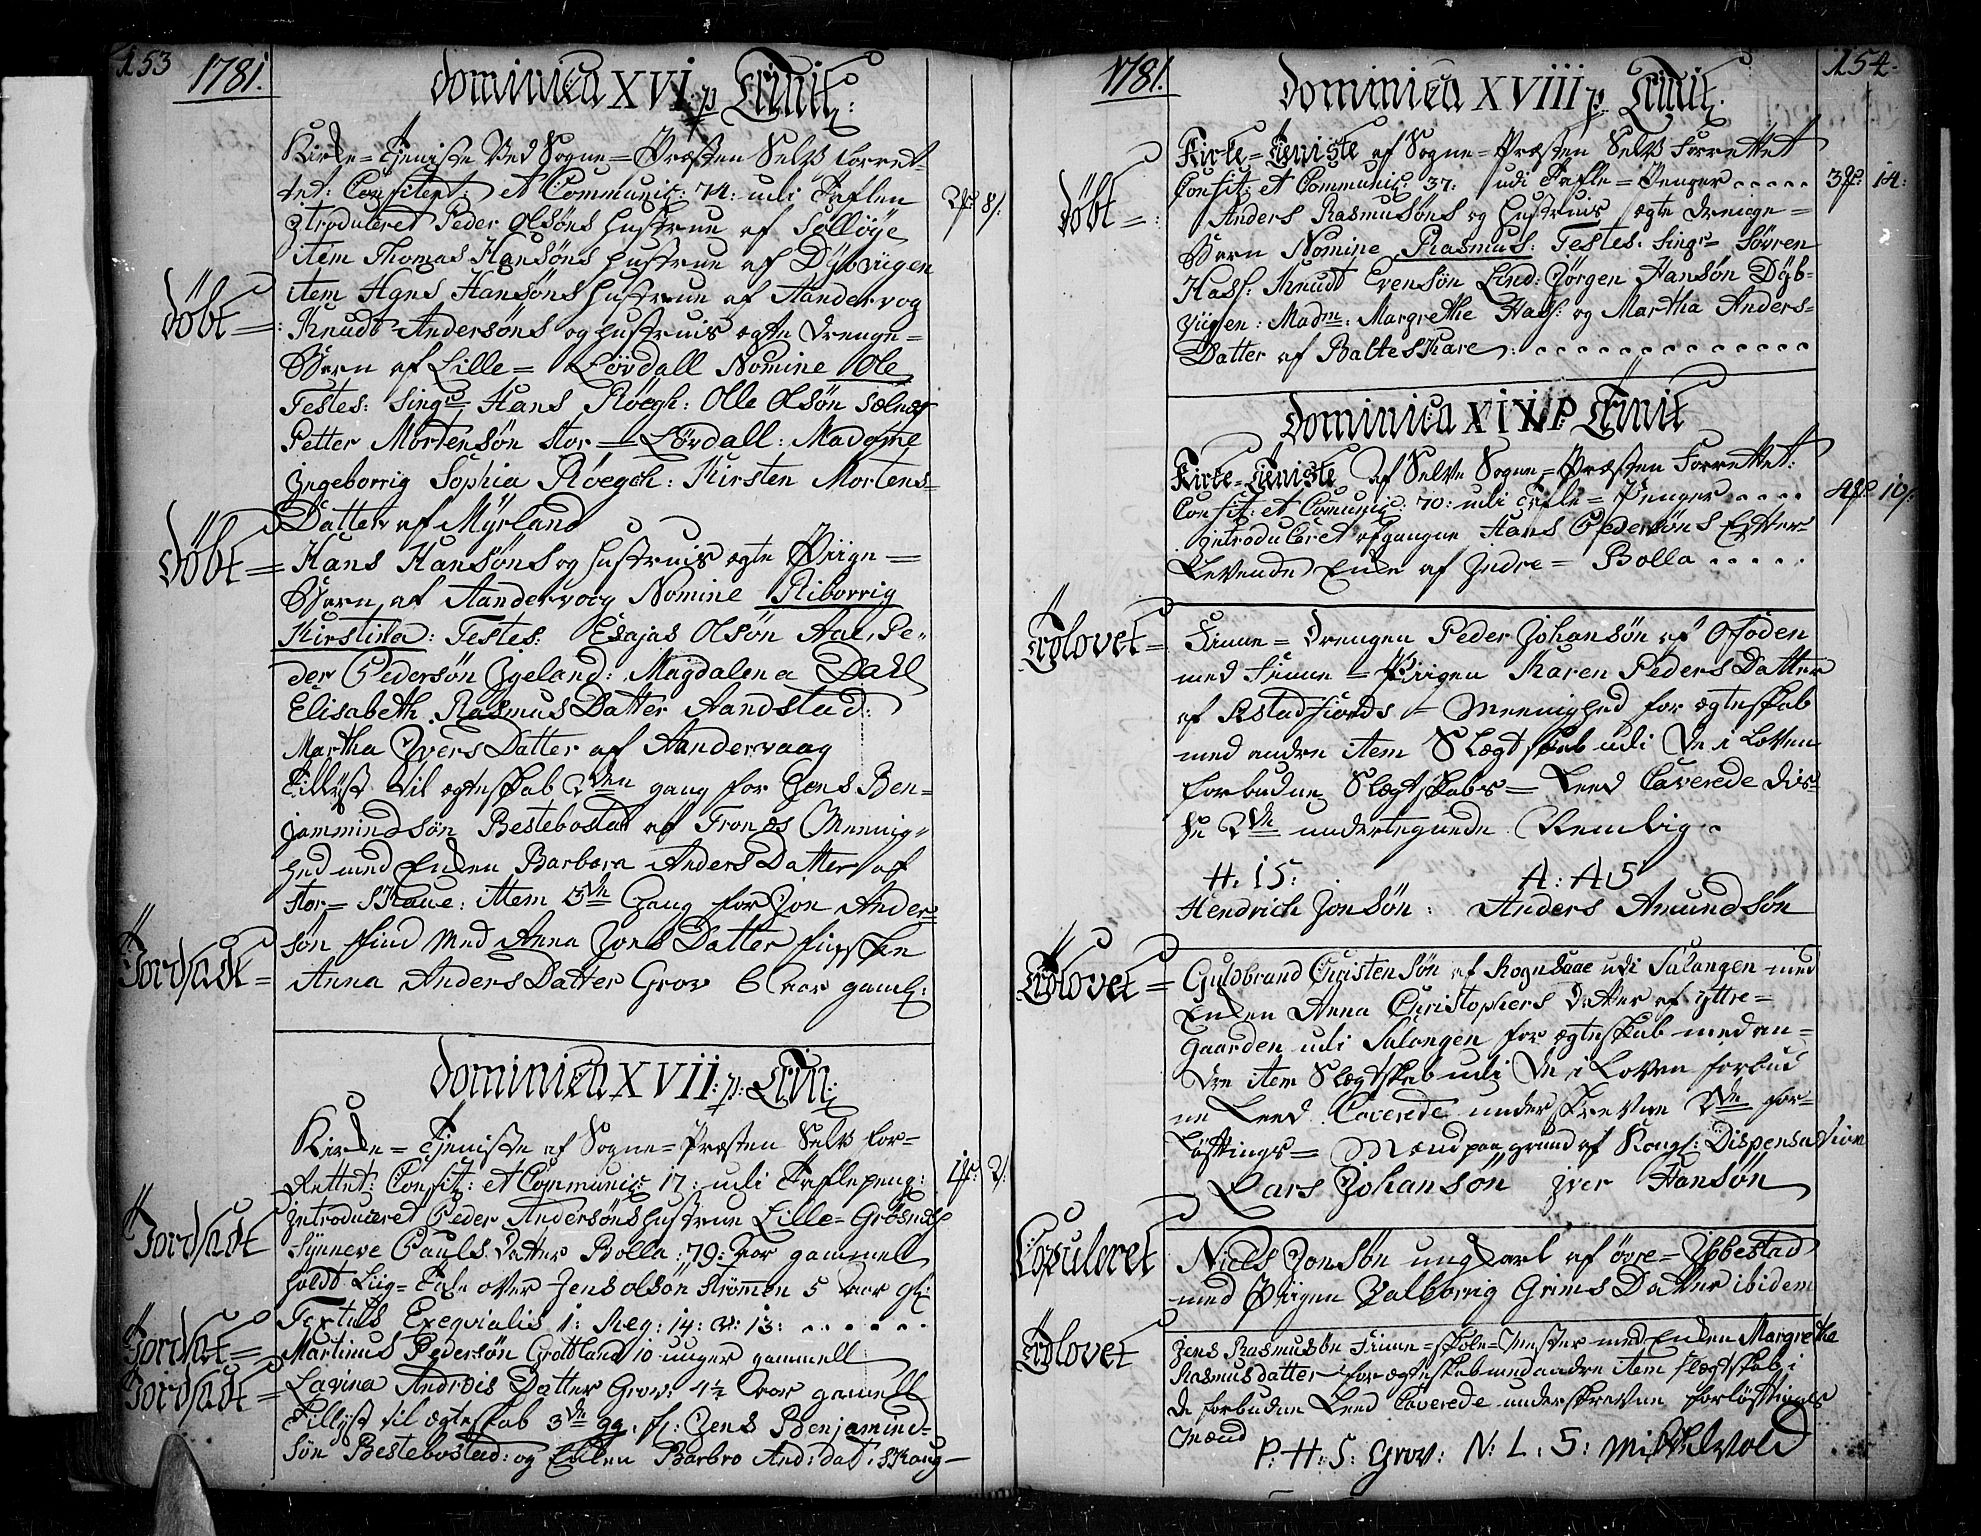 153 1781.
Dominica XVI p Trinit:
Kirke = Tjeniste Ved Sogne = Præsten Selv forret-
tet: Confitent: et Communic: 74: udi Taflen 2 8/.
Jntroduceret Peder Olsøns Hustrue af Sølløÿe
item Thomas Hansøns Hustrue af Dÿbviigen
item Hans Hansøns Hustrue af Aandervog
døbt = Knudt Andersøns og Hustruis ægte Drenge =
Barn af Lille = Løvdall Nomine Ole
Testes: Sing: Hans Røegh: Olle Olsøn Sælnæs
Petter Mortensøn Stor = Løvdall: Madame
Jngeborrig Sophia Røegh: Kirsten Mortens =
Datter af Mÿrland
døbt = Hans Hansøns og Hustruis ægte Piige =
Barn af Aandervog Nomine Riborrig
Kirstina: Testes: Esajas Olsøn Aae, Pe-
der Pedersøn Jgeland: Magdalena Dahl
Elisabeth RasmusDatter Aandstad:
Martha JversDatter af Aandervaag
Tillÿst til ægteskab 2den gang for Jens Ben-
jammindsøn Bestebostad af Tronæs Meenig-
hed med Enken Barbara AndersDatter af
Stor = Skaue: Item 3de Gang for Jon Ander-
søn find med Anna JonsDatter
Jordsadt = Anna AndersDatter Grov 6 aar gamel:
Dominica XVII: p: Trin:
Kirke = Tjeniste af Sogne = Præsten Selv for-
Rettet: Confit: et Communic 17: udi Taflepeng: 1 2/.
Jntroduceret Peder Andersøns Hustrue Lille = Grøsnæs
Jordsadt Sÿnneve Pauls Datter Bolla: 79: aar gammel
holdt Liig = Tale over Jens Olsøn Strømmen 5 aar gl:
Textus Exeqvialis 1: Reg: 14: v: 13: . . . . . .
Jordsat = Martinus Pedersøn Grottland 10 uuger gammell
Jordsadt = Lavina Andreis Datter Grov: 4½ aar gamell
Tillÿst til ægteskab 3de gg. f: Jens Benjamind-
søn Bestebostad: og Enken Barbro And: dat: Skaug —
1781. 154.
Dominica XVIII p. Trinit.
Kirke = Tieniste af Sogne = Præsten Selv Forrettet
Confit: et Communic: 37: udi Tafle = Penger . . . . . 3 14:
døbt =: Anders Rasmusøns og Hustruis ægte Drenge =
Barn Nomine Rasmus: Testes: Singr Søvren
Hass: Knudt Evensøn Lind: Jørgen Hansøn Dÿb-
viigen: Madm: Margrethe Hass: og Martha Anders-
Datter af Balteskare: . . . . . . . . . . . . .
Dominica XIX P: Trinit
Kirke = Tieniste af Selve Sogne = Præsten Forrettet:
Confit: et Comunic: 70: udi Tafle = Penger . . . . 4 10/.
Jntroduceret afgangne Hans Pedersøns Efter
Levende Enke af Jndre = Bolla . . . . .
Trolovet = Finne = Drengen Peder Johansøn af Ofoden
med Finne = Piigen Karen PedersDatter
af Astadfiords = Meenighed for ægteskab
med andre item Slægtskab udi De i Loven
forbudne Slægtskabs = Leed Caverede dis-
se 2de undertegnede Nemlig.
H. I S: A: A S
Hendrich Jonsøn: Anders Amundsøn
Trolovet = Guldbrand Christensøn af Rognsaae udi Salangen med
Enken Anna Christophers Datter af ÿttre =
Gaarden udi Salangen for ægteskab med an =
dre item Slægtskab udi De i Loven forbud
ne Leed Caverede underskrevne 2de for =
løftings = Mænd paa grund af Kongl: Dispensation
Lars Johansøn Jver Hansøn
Copuleret Niels Jonsøn ungkarl af øvre = Jbbestad
med Piigen Valborrig Grims Datter ibidem
Trolovet Jens Rasmusøn Finne = Skole = Mester med Enken Margrethe
Rasmusdatter for ægteskab med andre item Slægtskab i
De forbudne Leed Caverede underskrevne forløftings
Mænd P: H: S: Grov: N: L: S: Mikkelvold